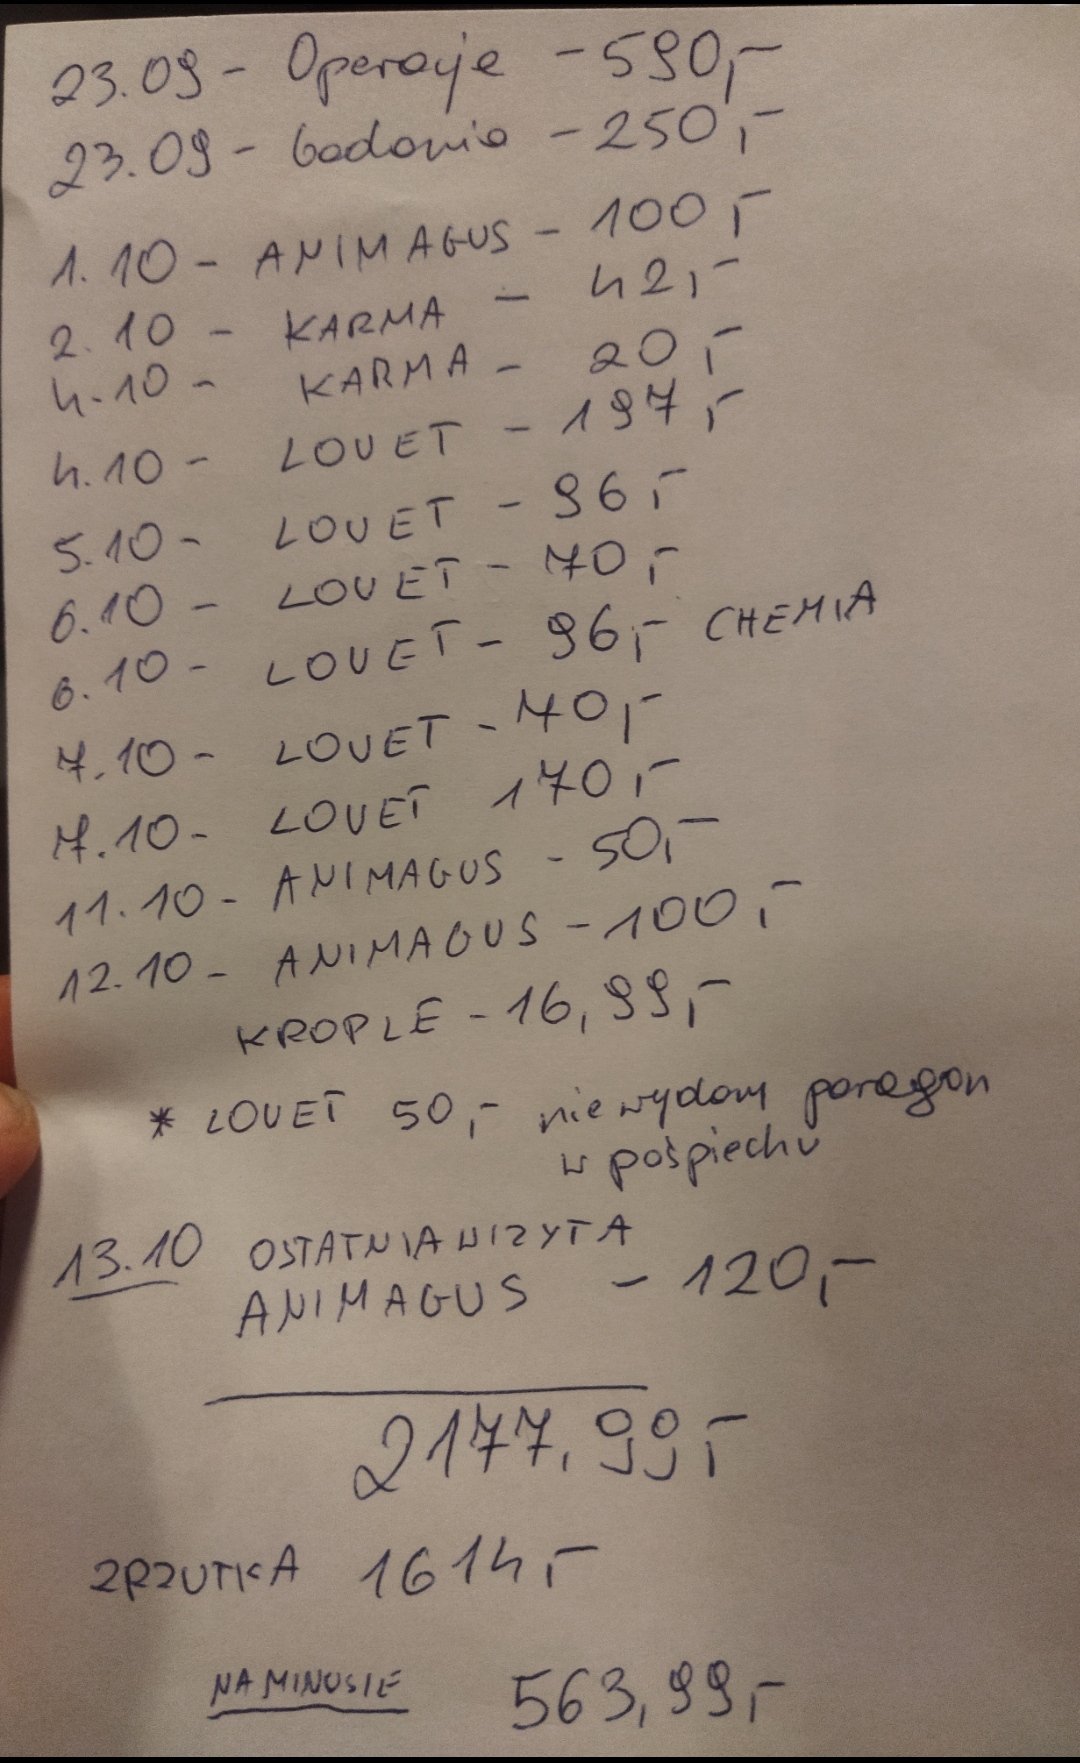 23.09 - Operacje - 590,-
23.09 - badania - 250,-
1.10 - ANIMAGUS - 100,-
2.10 - KARMA - 42,-
4.10 - KARMA - 20,-
4.10 - LOVET - 197,-
5.10 - LOVET - 96,-
6.10 - LOVET - 70,-
6.10 - LOVET - 96,- CHEMIA
7.10 - LOVET - 70,-
7.10 - LOVET 170,-
11.10 - ANIMAGUS - 50,-
12.10 - ANIMAGUS - 100,-
KROPLE - 16,99,-
* LOVET 50,- nie wydany paragon
w pośpiechu
13.10 OSTATNIA WIZYTA
ANIMAGUS - 120,-
2177,99,-
ZRZUTKA 1614,-
NA MINUSIE 563,99,-